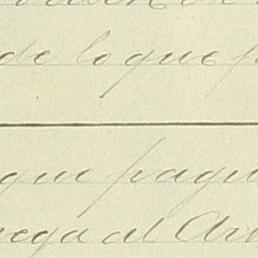 de lo que p
que pague
rega al Ar